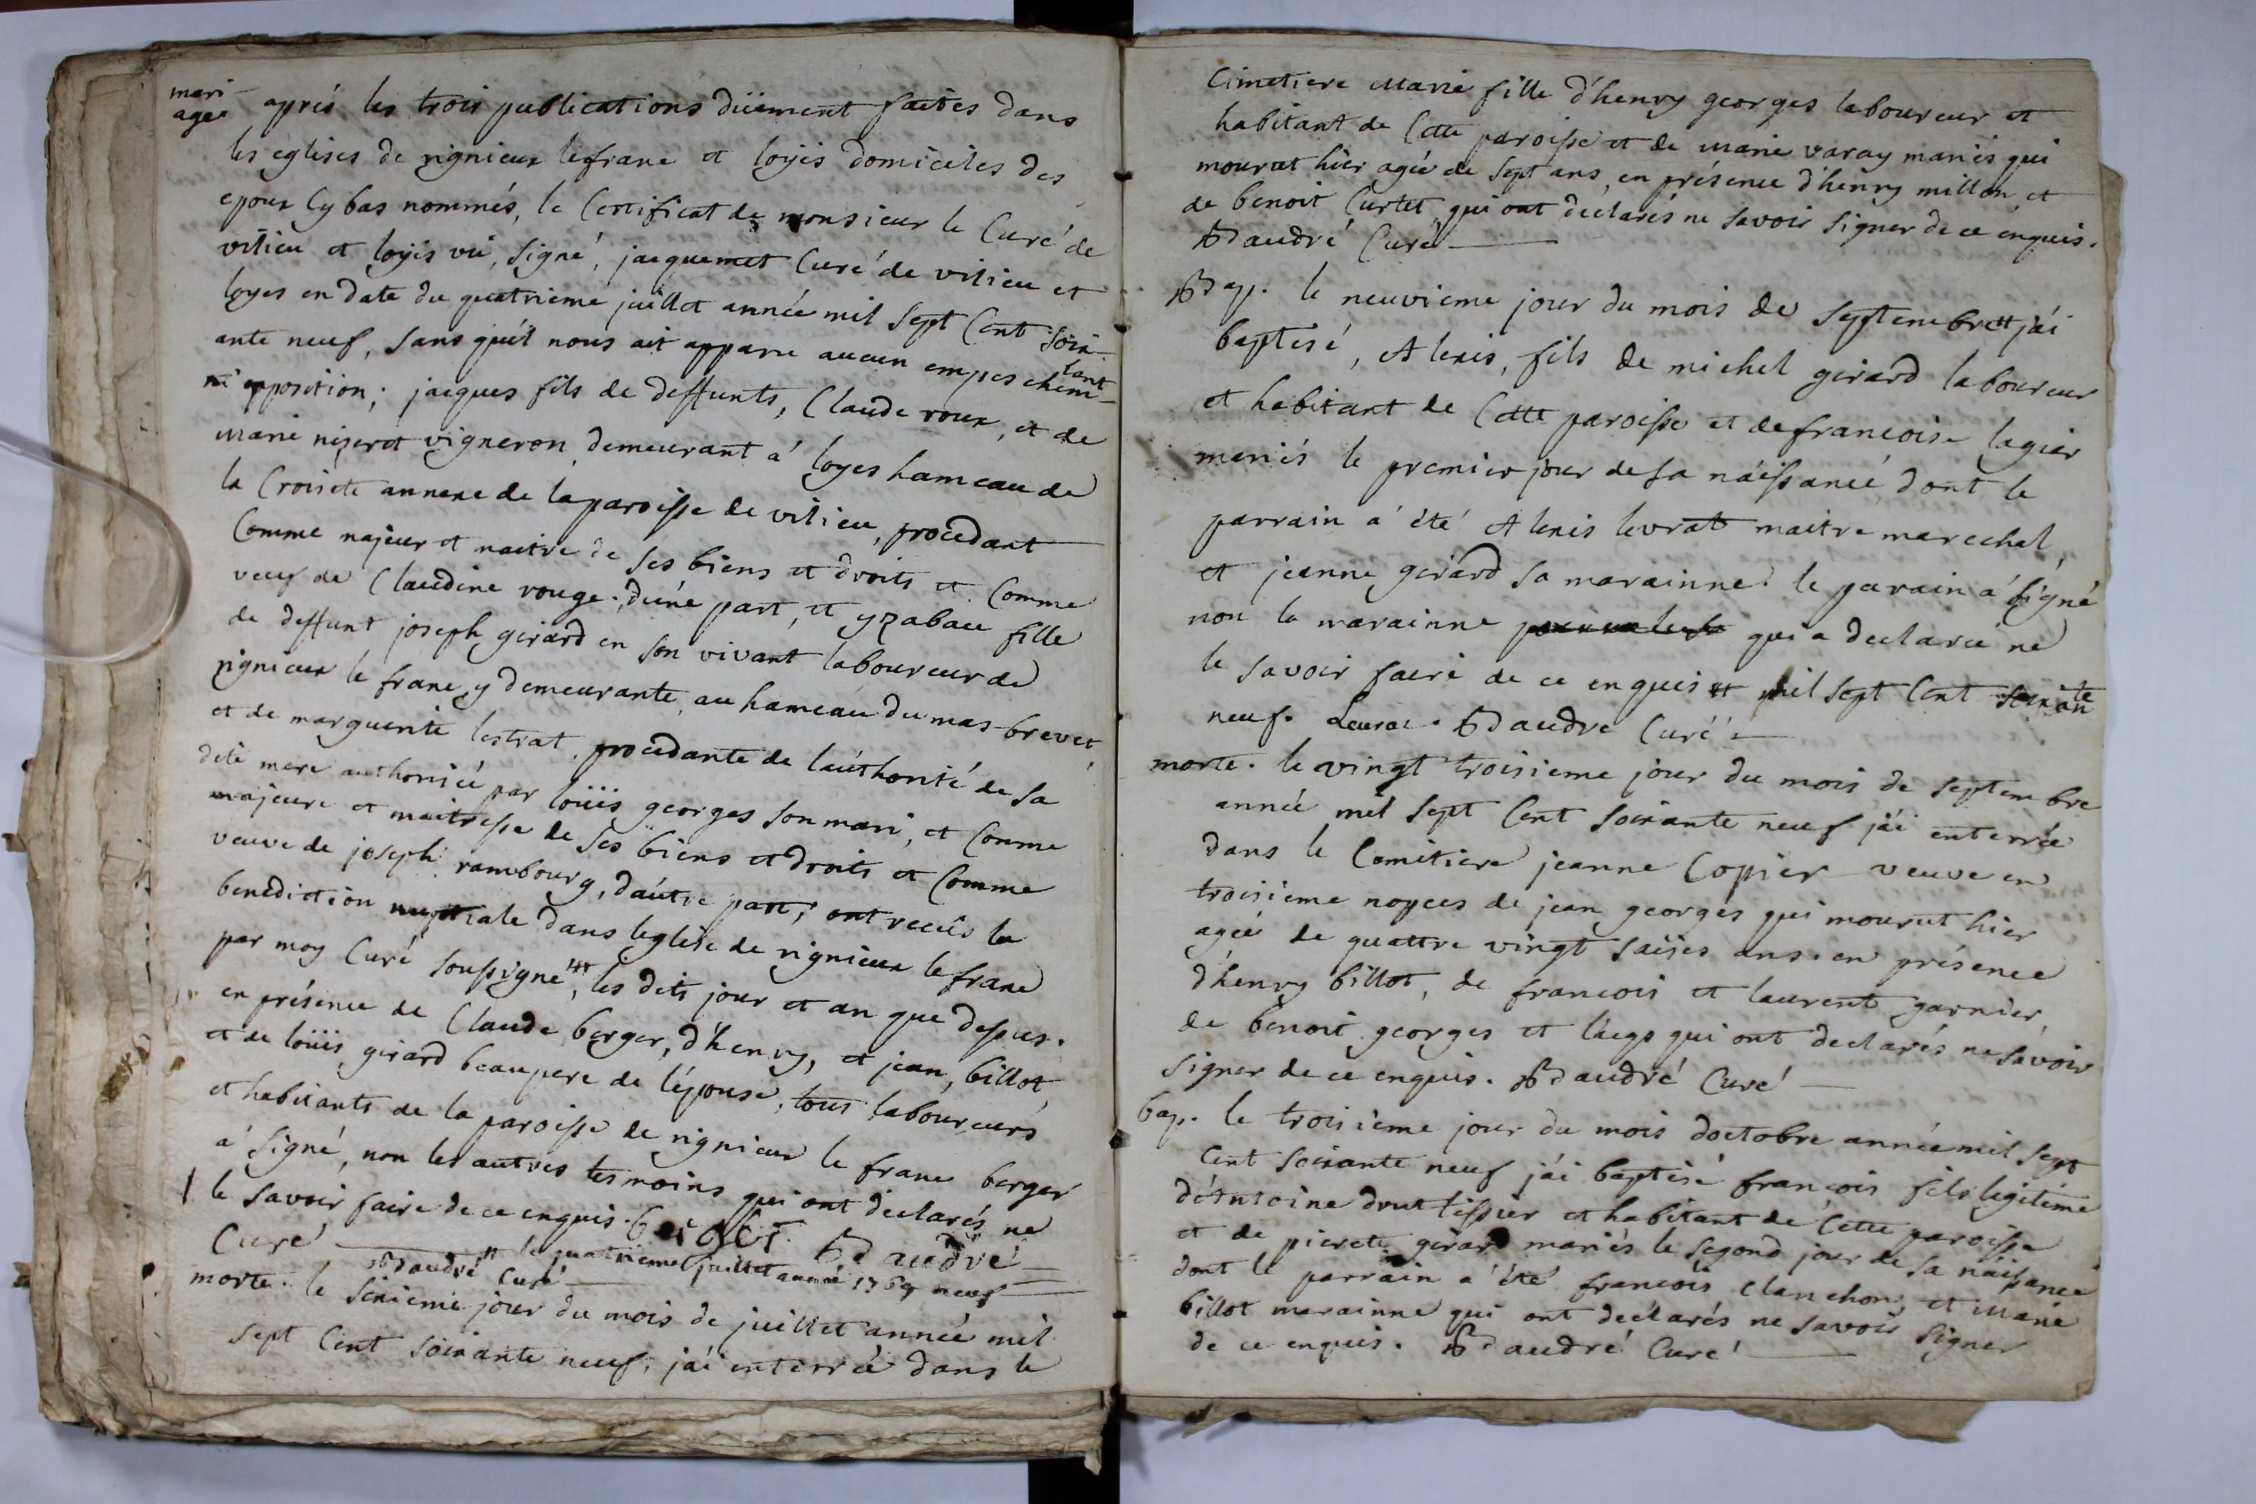 mari-
agee aprés les trois publications düement faites dans
les eglises de rignieux lefranc et loÿis domiciles des
epoux cy bas nommés, le Certificat de monsieur le Curé de
vilieu et loÿis vu, signé, jacquemet Curé de vilieu et
loyes en date du quatrieme juillet année mil sept Cent soix-
ante neuf, sans qu'il nous ait apparu aucun empeschem-ent
ni opposition; jacques fils de deffunts, Claude roux, et de
marie nizeret vigneron demeurant a' loyes hameau de
la Croisete annexe de la paroisse de vilieu, procedant
Comme majeur et maitre de ses biens et droits et Comme
veuf de Claudine rouge. d'une part, et yzabau fille
de deffunt joseph girard en son vivant laboureur de
rignieux le franc y demeurante au hameau du mas-brevet,
et de marguerite lestrat, procedante de l'authorité de sa
dite mere authorisée par loüis georges son mari, et Comme
majeure et maitresse de ses biens et droits et Comme
veuve de joseph rambourg, d'autre part, ont receûs la
benediction nuptiale dans l'eglise de rignieux le franc
par moy Curé soussigné #, les dits jour et an que dessus.
en présence de Claude berger, d'henry, et jean, billot,
et de loüis girard beaupere de l'épouse, tous laboureurs
et habitants de la paroisse de rignieux le franc berger
a' signé, non les autres tesmoins qui ont declarés ne
le savoir faire de ce enquis. berger. Bdaudré
Curé
# le quatrieme juillet année 1769 neuf
Bdaudré Curé
morte. le sixieme jour du mois de juillet année mil
sept Cent soixante neuf, j'ai enterrée dans le
Cimetiere marie fille d'henry georges laboureur et
habitant de Cette paroisse et de marie varay mariés qui
mourut hier agée de sept ans, en présence d'henry millon, et
de benoit Curtet qui ont declarés ne savoir signer de ce enquis.
Bdaudré Curé
Bap. le neuvieme jour du mois de septembre # j'ai
baptisé, Alexis, fils de michel girard laboureur
et habitant de Cette paroisse et de francoise lagier
mariés le premier jour de sa naissance dont le
parrain a' été Alexis levrat maitre marechal,
et jeanne girard sa marainne. le parain a' signé
non la marainne qui a declarée ne
le savoir faire de ce enquis # mil sept Cent soixante
neuf. Leurat. Bdaudré Curé
morte. le vingt troisieme jour du mois de septembre
année mil sept Cent soixante neuf j'ai enterrée
dans le Comitiere jeanne Copier veuve en
troisieme nopces de jean georges qui mourut hier
agée de quattre vingt saises ans. en présence
d'henry billot, de francois et laurent garnier,
de benoit georges et l'aegs qui ont declarés ne savoir
signer de ce enquis. Bdaudré Curé
bap. le troisieme jour du mois d'octobre année mil sept
Cent soixante neuf j'ai baptisé francois fils legitime
d'Antoine drut tissier et habitant de Cette paroisse
et de pierete girard mariés le segond jour de sa naissance
dont le parrain a' été francois Clanchon, et marie
billot marainne qui ont declarés ne savoir signer
de ce enquis. Bdaudré Curé